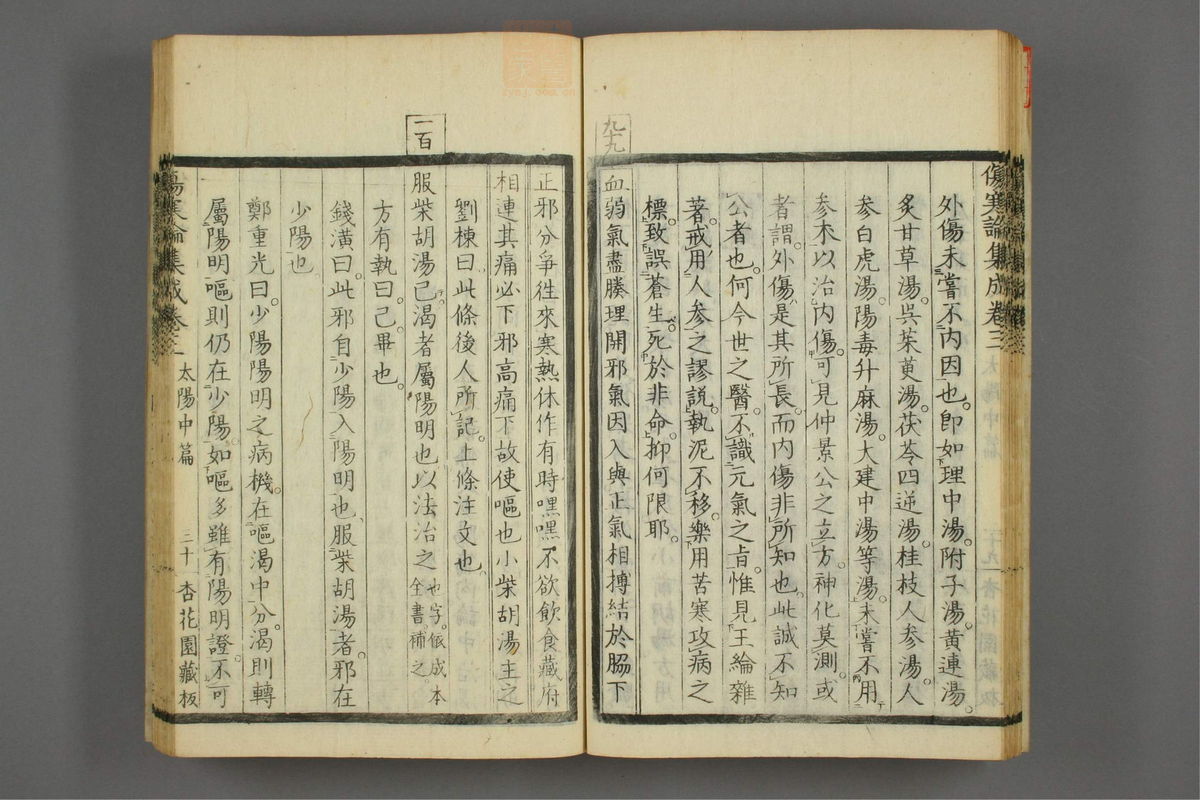 傷寒論集成卷三
外傷未嘗不內因也。卽如理中湯。附子湯。黃連湯。
炙甘草湯。吳茱萸湯。茯苓四逆湯。桂枝人參湯。人
參白虎湯。陽毒升麻湯。大建中湯等湯。未嘗不用
參朮以治內傷。可見仲景公之立方。神化莫測。或
者謂。外傷是其所長。而內傷非所知也。此誠不知
公者也。何今世之醫。不識元氣之旨。惟見王綸雜
著。戒用人參之謬說。執泥不移。樂用苦寒攻病之
標。致誤蒼生。死於非命。抑何限耶。
九十九
血弱氣盡腠理開邪氣因入與正氣相搏結於脇下
正邪分爭徃來寒熱休作有時嘿嘿不欲飮食藏府
相連其痛必下邪高痛下故使嘔也小柴胡湯主之
劉棟曰。此條後人所記。上條注文也。
一百
服柴胡湯已渴者屬陽明也以法治之也字。依成本
全書。補之。
方有執曰。已。畢也。
錢潢曰。此邪自少陽入陽明也。服柴胡湯者。邪在
少陽也。
鄭重光曰。少陽陽明之病機。在嘔渴中分。渴則轉
屬陽明。嘔則仍在少陽。如嘔多雖有陽明證。不可
傷寒論集成卷三 太陽中篇 三十 杏花園藏板